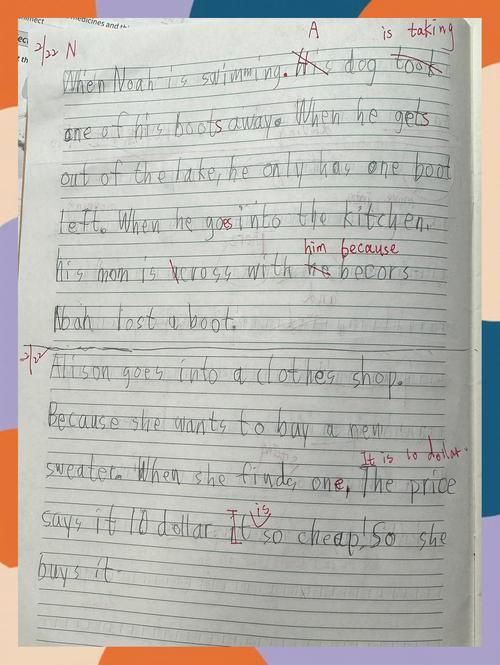 medicines and th
A is taking
2/22 N
When Noah is swimming. His dog took
one of his boots away. When he gets
out of the lake, he only has one boot
left. When he goes into the kitchen,
him because
his mom is across with he becors
Noah lost a boot.
2/22
Alison goes into a clothes shop.
Because she wants to buy a new
It is 10 dollar.
sweater. When she finds one, The price
is
says it 10 dollar. It so cheap! So she
buys it.